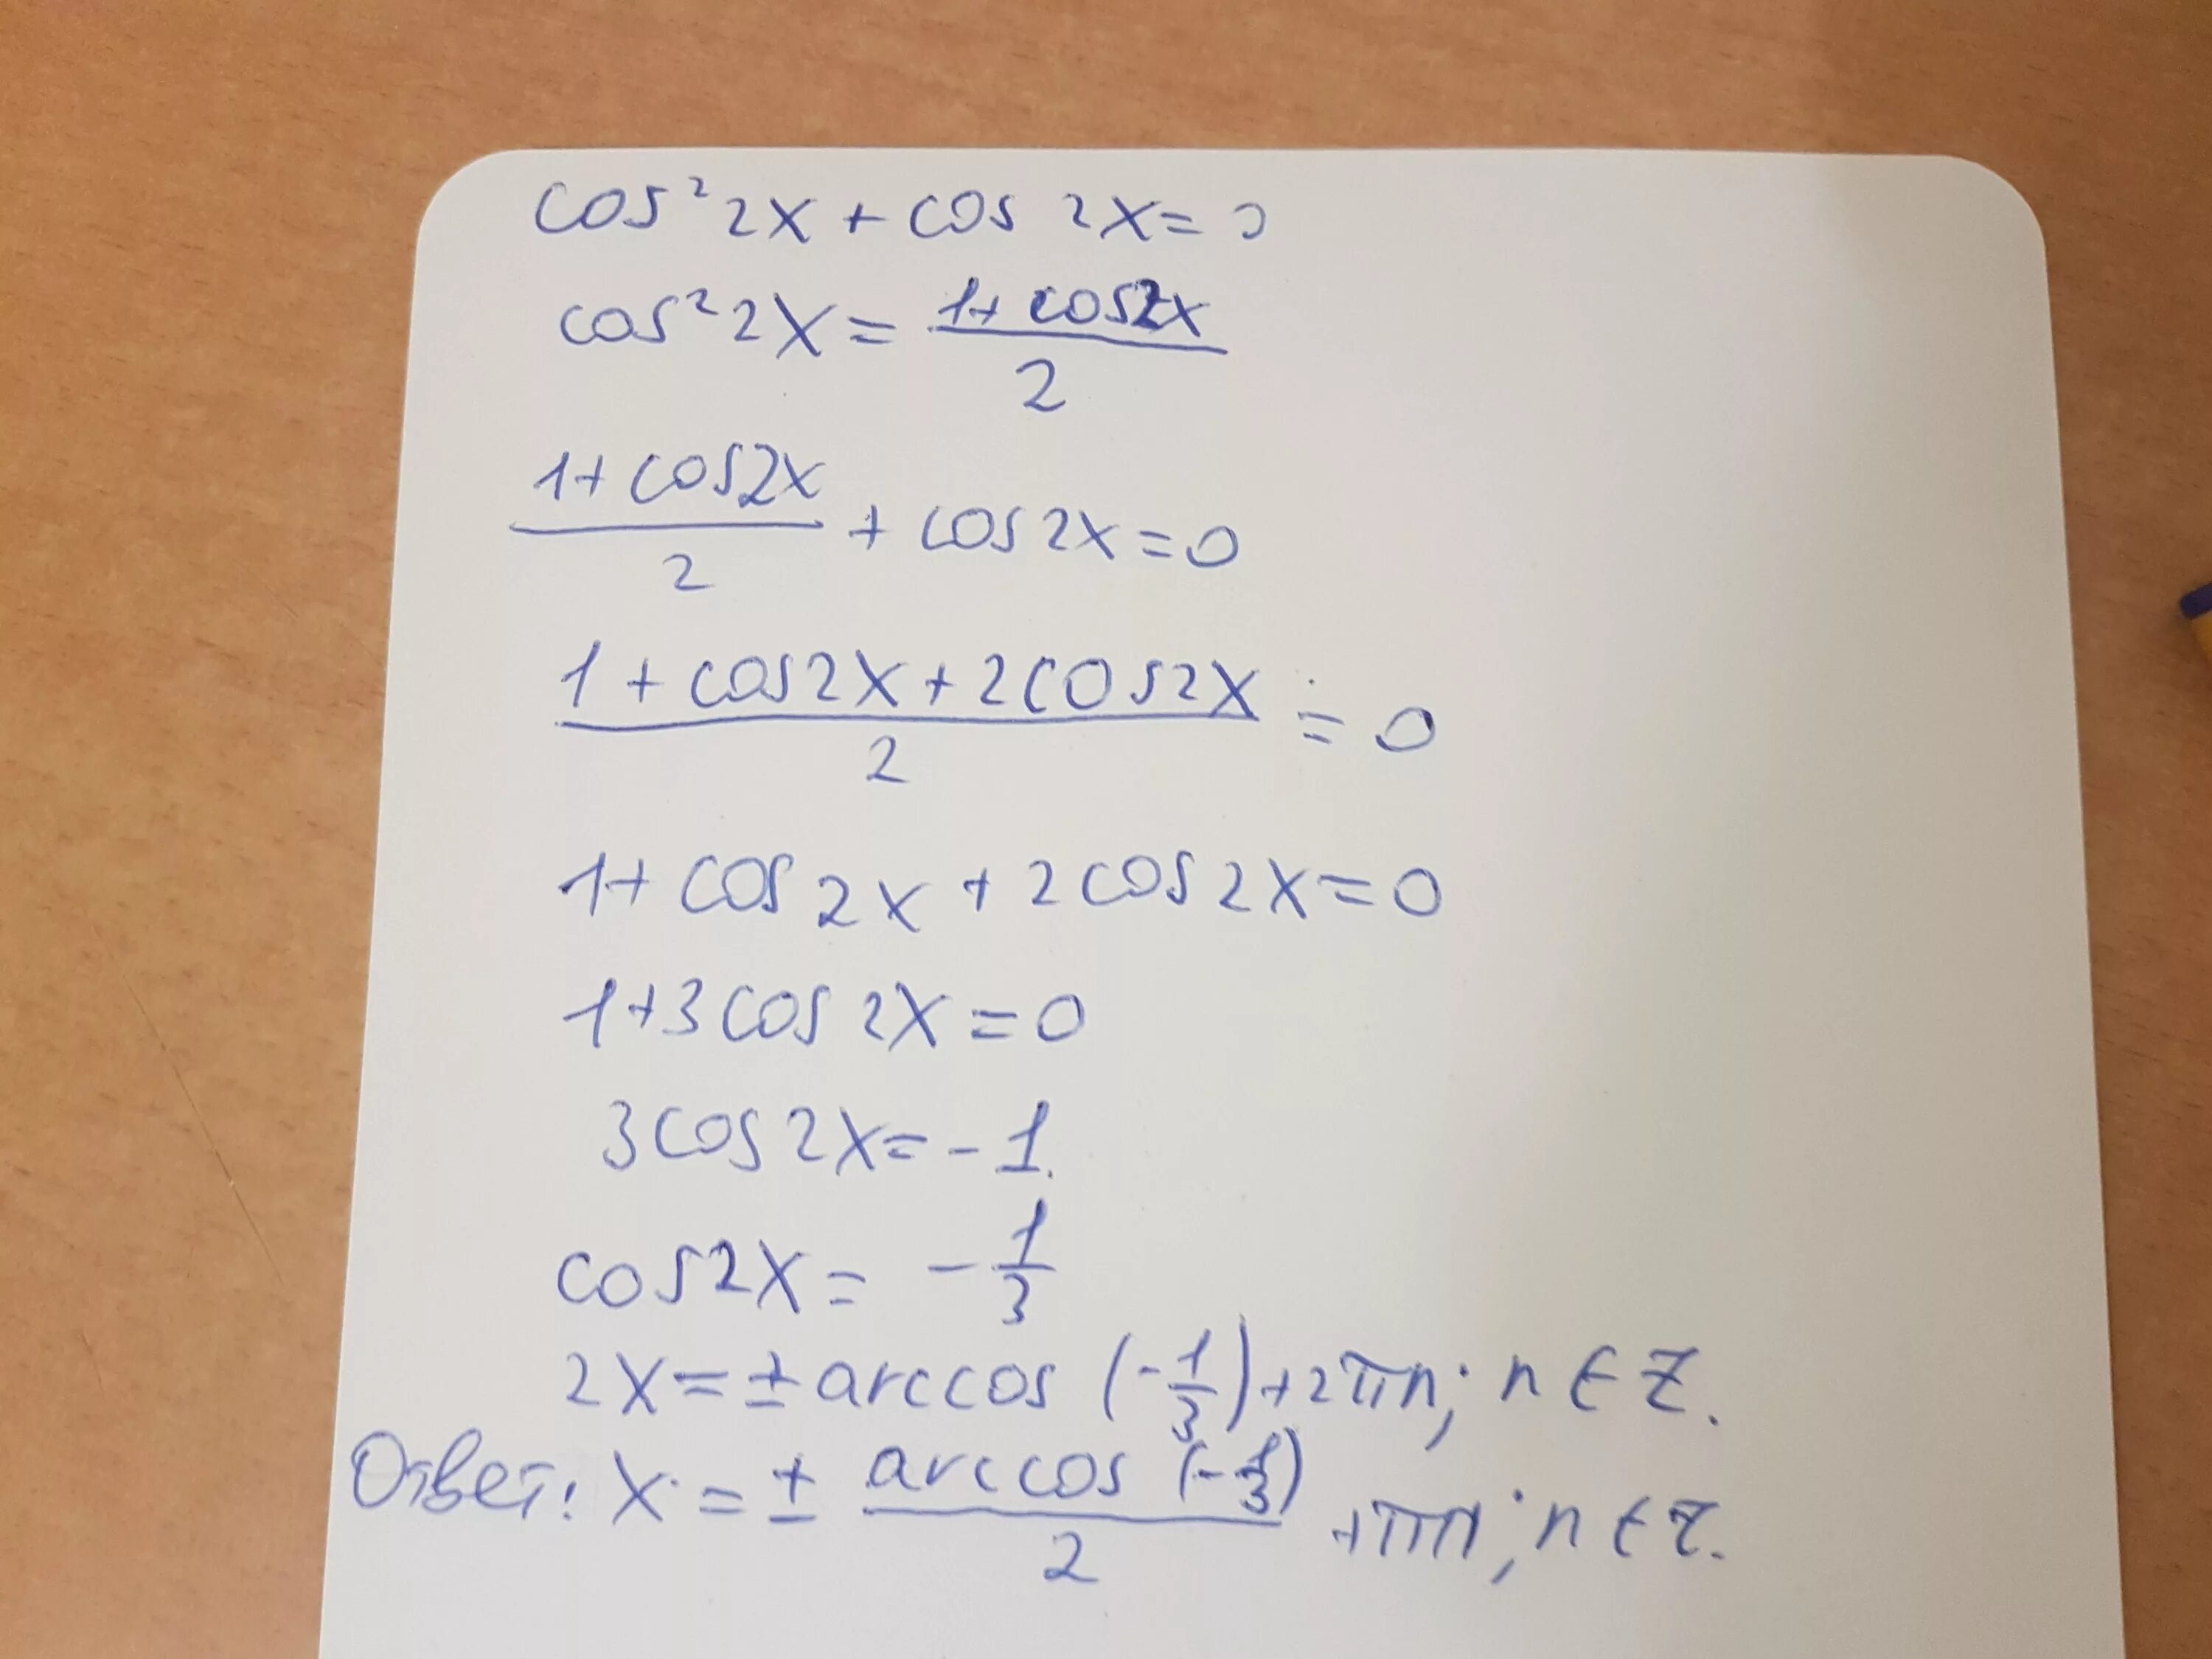 cos² 2x + cos 2x = 0
cos² 2x = (1 + cos2x)/2
(1 + cos2x)/2 + cos 2x = 0
(1 + cos2x + 2cos2x)/2 = 0
1 + cos 2x + 2 cos 2x = 0
1 + 3 cos 2x = 0
3 cos 2x = -1.
cos 2x = -1/3
2x = ± arccos (-1/3) + 2πn; n ∈ Z.
Ответ: x = ± arccos (-1/3)/2 + πn; n ∈ Z.